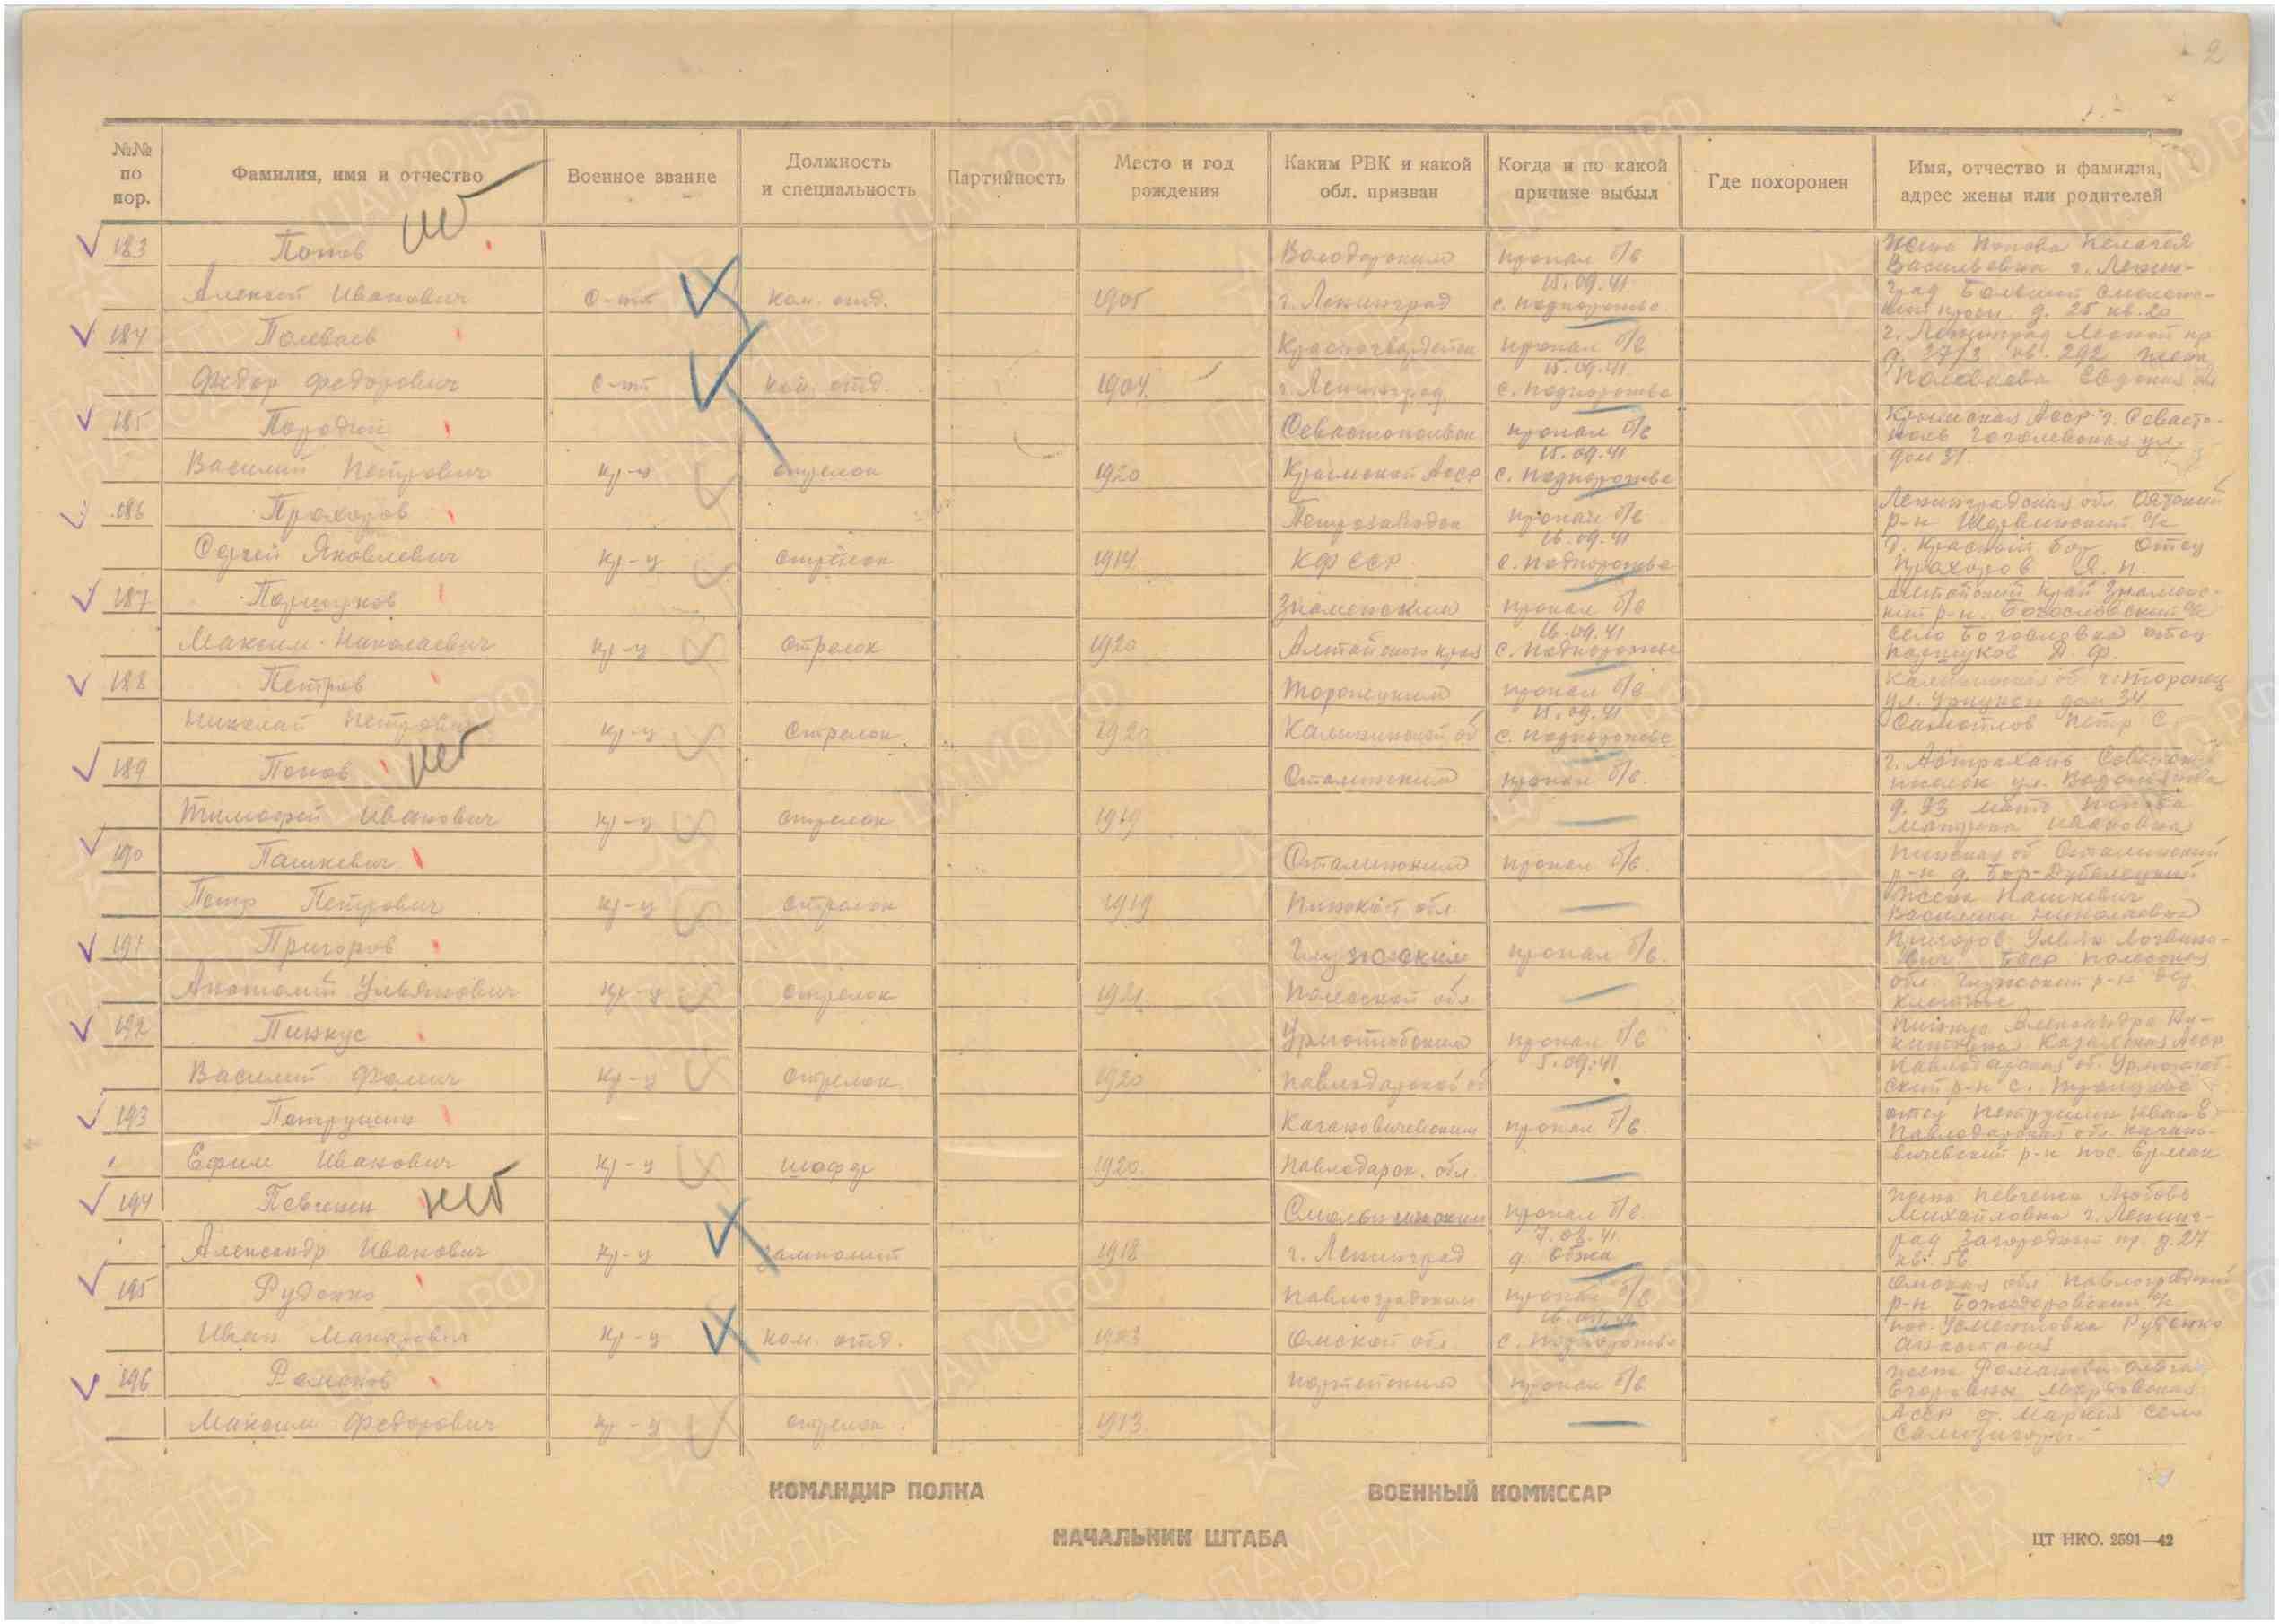 2
№№ по пор.
Фамилия, имя и отчество
Военное звание
Должность и специальность
Партийность
Место и год рождения
Каким РВК и какой обл. призван
Когда и по какой причине выбыл
Где похоронен
Имя, отчество и фамилия, адрес жены или родителей
нет
183 Попов Володарским пропал б/в
Алексей Иванович с-нт ком. отд. 1905 г. Ленинград 15.09.41 с. Подпорожье
Жена Попова
Васильевна г. Ленин-
град Большой
д. 25 кв. 20
184 Полеваев Красногвардейск пропал б/в
Федор Федорович с-нт ком. отд. 1904 г. Ленинград 15.09.41 с. Подпорожье
г. Ленинград Лесной пр
д. 37/3 кв. 292 жена
Полеваева Евдокия
185 Породий Севастопольск пропал б/в
Василий Петрович кр-ц стрелок 1920 Крымской АССР 15.09.41 с. Подпорожье
Крымская АССР г. Севасто-
поль Гоголевская ул.
дом 31.
186 Прохоров Петрозаводск пропал б/в
Сергей Яковлевич кр-ц стрелок 1914 КФ ССР 16.09.41 с. Подпорожье
Ленинградская обл Оятский
р-н с/с
д. Красный бор Отец
Прохоров Я. П.
187 Поршуков Знаменским пропал б/в
Максим Николаевич кр-ц стрелок 1920 Алтайского края 16.09.41 с. Подпорожье
Алтайский край Знаменс-
кий р-н. Богословский с/с
село Богословка отец
Паршуков Д. Ф.
188 Петров Торопецким пропал б/в
Николай Петрович кр-ц стрелок 1920 Калининской об 15.09.41 с. Подпорожье
Калининская об г. Торопец
ул. Урицкого дом 34
Самойлов Петр С.
189 Попов нет Сталинским пропал б/в.
Тимофей Иванович кр-ц стрелок 1919
г. Астрахань Советск
поселок ул.
д. 93 мать Попова
Матрена Ивановна
190 Пашкевич Сталинским пропал б/в.
Петр Петрович кр-ц стрелок 1919 Пинской обл.
Пинская об Сталинский
р-н д. Бор-Дубенецкий
жена Пашкевич
Василиса Николаевна
191 Пригоров Глузским пропал б/в.
Анатолий Ульянович кр-ц стрелок 1921 Полеской обл
Пригоров Ульян Логвино-
вич БССР Полесская
обл. Глузский р-н дер
192 Пинкус Урлютюбским пропал б/в
Василий Фомич кр-ц стрелок. 1920 Павлодарской об 5.09.41
Александра Ни-
китовна Казахская АССР
Павлодарская об. Урлютюб-
ский р-н с.
193 Петрушин Кагановичевским пропал б/в.
Ефим Иванович кр-ц шофер 1920. Павлодарск. обл.
отец Петрушин Иван Е.
Павлодарская обл. Кагано-
вичевский р-н пос. Ермак
194 Певченен нет Смольнинским пропал б/в.
Александр Иванович кр-ц замполит 1918 г. Ленинград 7.08.41. д. Обжа
жена Певченен Любовь
Михайловна г. Ленинг-
рад Загородный пр. д. 27
кв. 56
195 Руденко Павлоградским пропал б/в
Иван Макарович кр-ц ком. отд. 1903 Омской обл. с. Подпорожье
Омская обл Павлоградский
р-н Божедаровский с/с
пос. Руденко
Анастасия
196 Романов пропал б/в
Максим Федорович кр-ц стрелок. 1913.
жена Романова Ольга
Егоровна Мордовская
АССР
КОМАНДИР ПОЛКА
ВОЕННЫЙ КОМИССАР
НАЧАЛЬНИК ШТАБА
ЦТ НКО. 2591—42